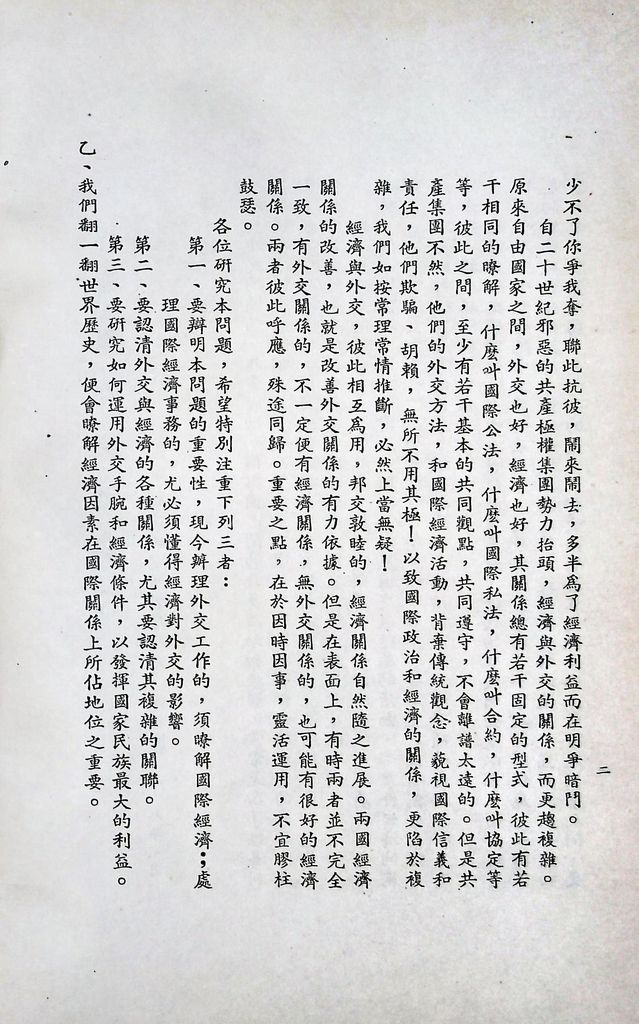 少不了你爭我奪，聯此抗彼，鬧來鬧去，多半爲了經濟利益而在明爭暗鬥。
自二十世紀邪惡的共產極權集團勢力抬頭，經濟與外交的關係，而更趨複雜。
原來自由國家之間，外交也好，經濟也好，其關係總有若干固定的型式，彼此有若
干相同的瞭解，什麼叫國際公法，什麼叫國際私法，什麼叫合約，什麼叫協定等
等，彼此之間，至少有若干基本的共同觀點，共同遵守，不會離譜太遠的。但是共
產集團不然，他們的外交方法，和國際經濟活動，背棄傳統觀念，藐視國際信義和
責任，他們欺騙、胡賴，無所不用其極！以致國際政治和經濟的關係，更陷於複
雜，我們如按常理常情推斷，必然上當無疑！
經濟與外交，彼此相互爲用，邦交敦睦的，經濟關係自然隨之進展。兩國經濟
關係的改善，也就是改善外交關係的有力依據。但是在表面上，有時兩者並不完全
一致，有外交關係的，不一定便有經濟關係，無外交關係的，也可能有很好的經濟
關係。兩者彼此呼應，殊途同歸。重要之點，在於因時因事，靈活運用，不宜膠柱
鼓瑟。
各位研究本問題，希望特別注重下列三者：
第一、要辯明本問題的重要性，現今辦理外交工作的，須瞭解國際經濟；處
理國際經濟事務的，尤必須懂得經濟對外交的影響。
第二、要認清外交與經濟的各種關係，尤其要認清其複雜的關聯。
第三、要研究如何運用外交手腕和經濟條件，以發揮國家民族最大的利益。
乙、我們翻一翻世界歷史，便會瞭解經濟因素在國際關係上所佔地位之重要。
二